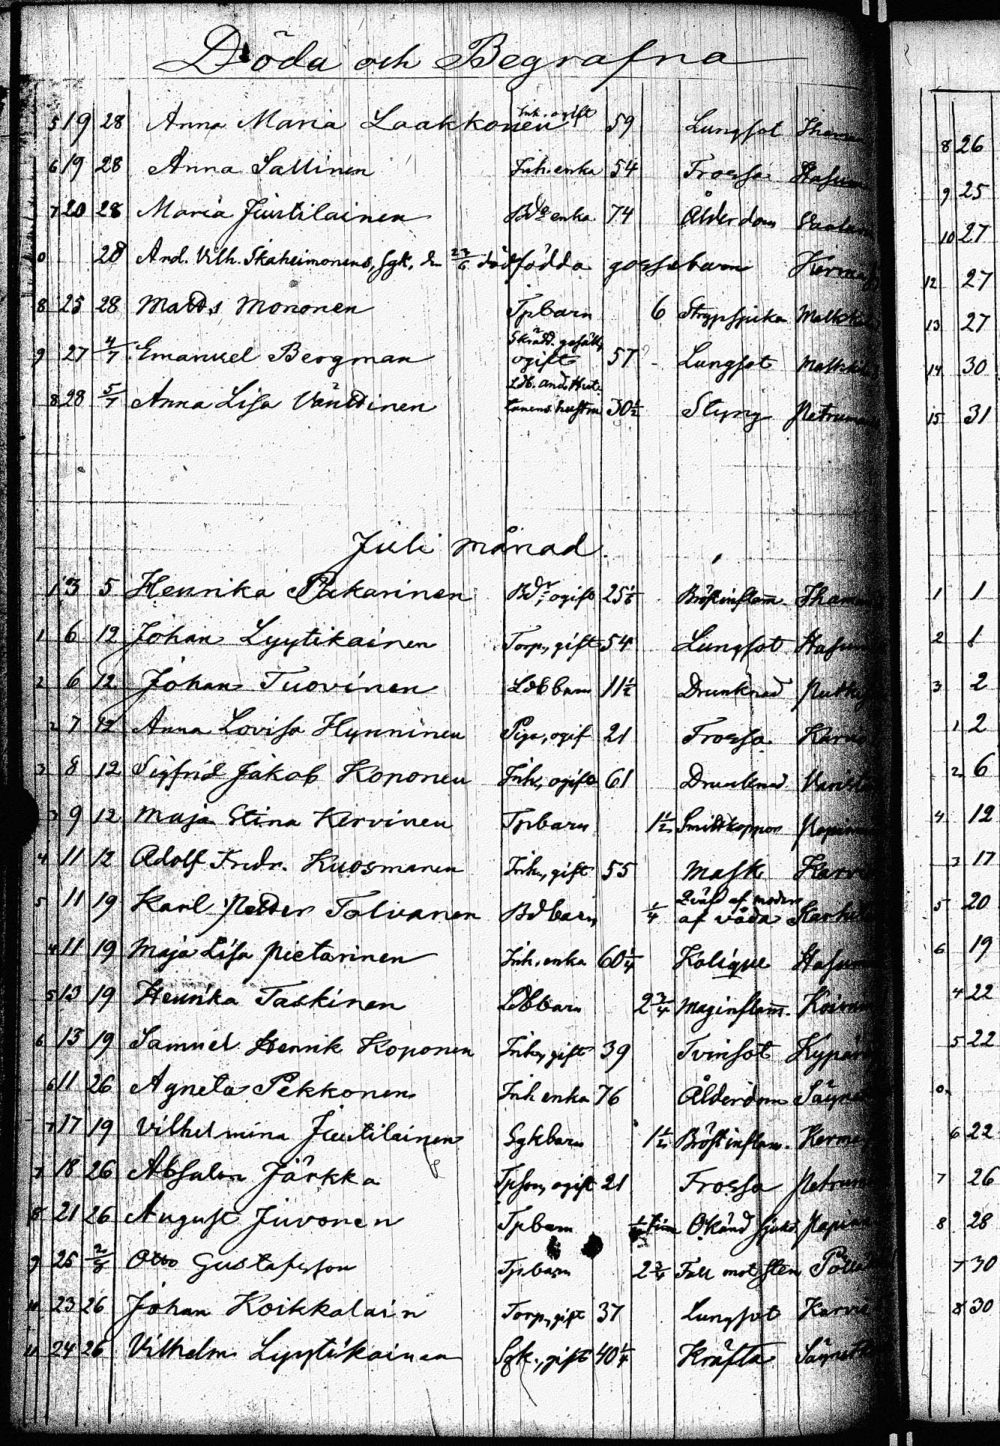 Döda och Begrafna
5 19 28 Anna Maria Laakkonen Inh. ogift 59 Lungsot
6 19 28 Anna Sallinen Inh. enka 54 Frossa
7 20 28 Maria Juutilainen Bde enka 74 Ålderdom
0 28 And. Vilh. Skaheimonens, sgk, d. 23/6 dödfödda gossebarn
8 25 28 Matts Mononen Tpbarn 6 Strypsjuka
9 27 4/7 Emanuel Bergman ogift 57 Lungsot
8 28 5/7 Anna Lisa Vänttinen 30 1/2
Juli månad.
1 3 5 Henrika Pakarinen Bdr, ogift 25 1/6 Bröstinflam
1 6 12 Johan Lyytikainen Torp, gift 54 Lungsot
2 6 12 Johan Tuovinen Ldbbarn 11 1/2 Drunknad
2 7 12 Anna Lovisa Hynninen Piga, ogif 21 Frossa
3 8 12 Sigfrid Jakob Koponen Inh., ogift 61 Drunknad
3 9 12 Maja Stina Kervinen Tpbarn 1 1/2 Smittkoppor
4 11 12 Adolf Fredr. Kuosmanen Inh., gift 55 Mask
5 11 19 Karl Petter Tolvanen Bdbarn 1/4 Qväfd af moder af våda
4 11 19 Maja Lisa Pietarinen Inh. enka 60 1/4 Kolique
5 13 19 Henrika Taskinen Ldbbarn 2 3/4 Maginflam.
6 13 19 Samuel Henrik Koponen Inh, gift 39 Tvinsot
6 11 26 Agneta Pekkonen Inh enka 76 Ålderdom
7 17 19 Vilhelmina Juutilainen Sgkbarn 1 1/2 Bröstinflam.
7 18 26 Absalon Järkka Tpson, ogift 21 Frossa
8 21 26 August Juvonen Tpbarn Okänd sjukd
9 25 2/8 Otto Gustafsson Tpbarn 2 3/4 Fall mot sten
23 26 Johan Koikkalain Torp, gift 37 Lungsot
24 26 Vilhelm Lyytikainen Sgk, gift 40 1/4 Kräfta
8 26
9 25
10 27
12 27
13 27
14 30
15 31
1 1
2 1
3 2
1 2
2 6
4 12
3 17
5 20
6 19
4 22
5 22
0
6 22
7 26
8 28
7 30
8 30